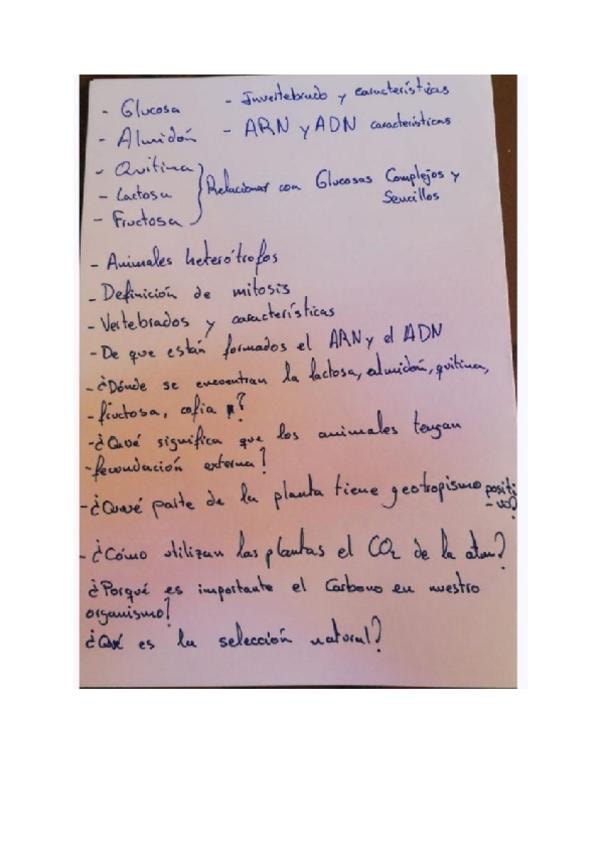 - Glucosa
- Almidón
- Quitina
- Lactosa
- Fructosa
- Invertebrado y características
- ARN y ADN características
Relacionar con Glucosas Complejos y
Sencillos
- Animales heterótrofos
- Definición de mitosis
- Vertebrados y características
- De que están formados el ARN y el ADN
- ¿Dónde se encuentran la lactosa, almidón, quitina,
- fructosa, cofia ?
- ¿Qué significa que los animales tengan
- fecundación externa?
- ¿Qué parte de la planta tiene geotropismo positi
- vo?
- ¿Cómo utilizan las plantas el CO2 de la atm?
¿Porqué es importante el Carbono en nuestro
organismo?
¿Qué es la selección natural?